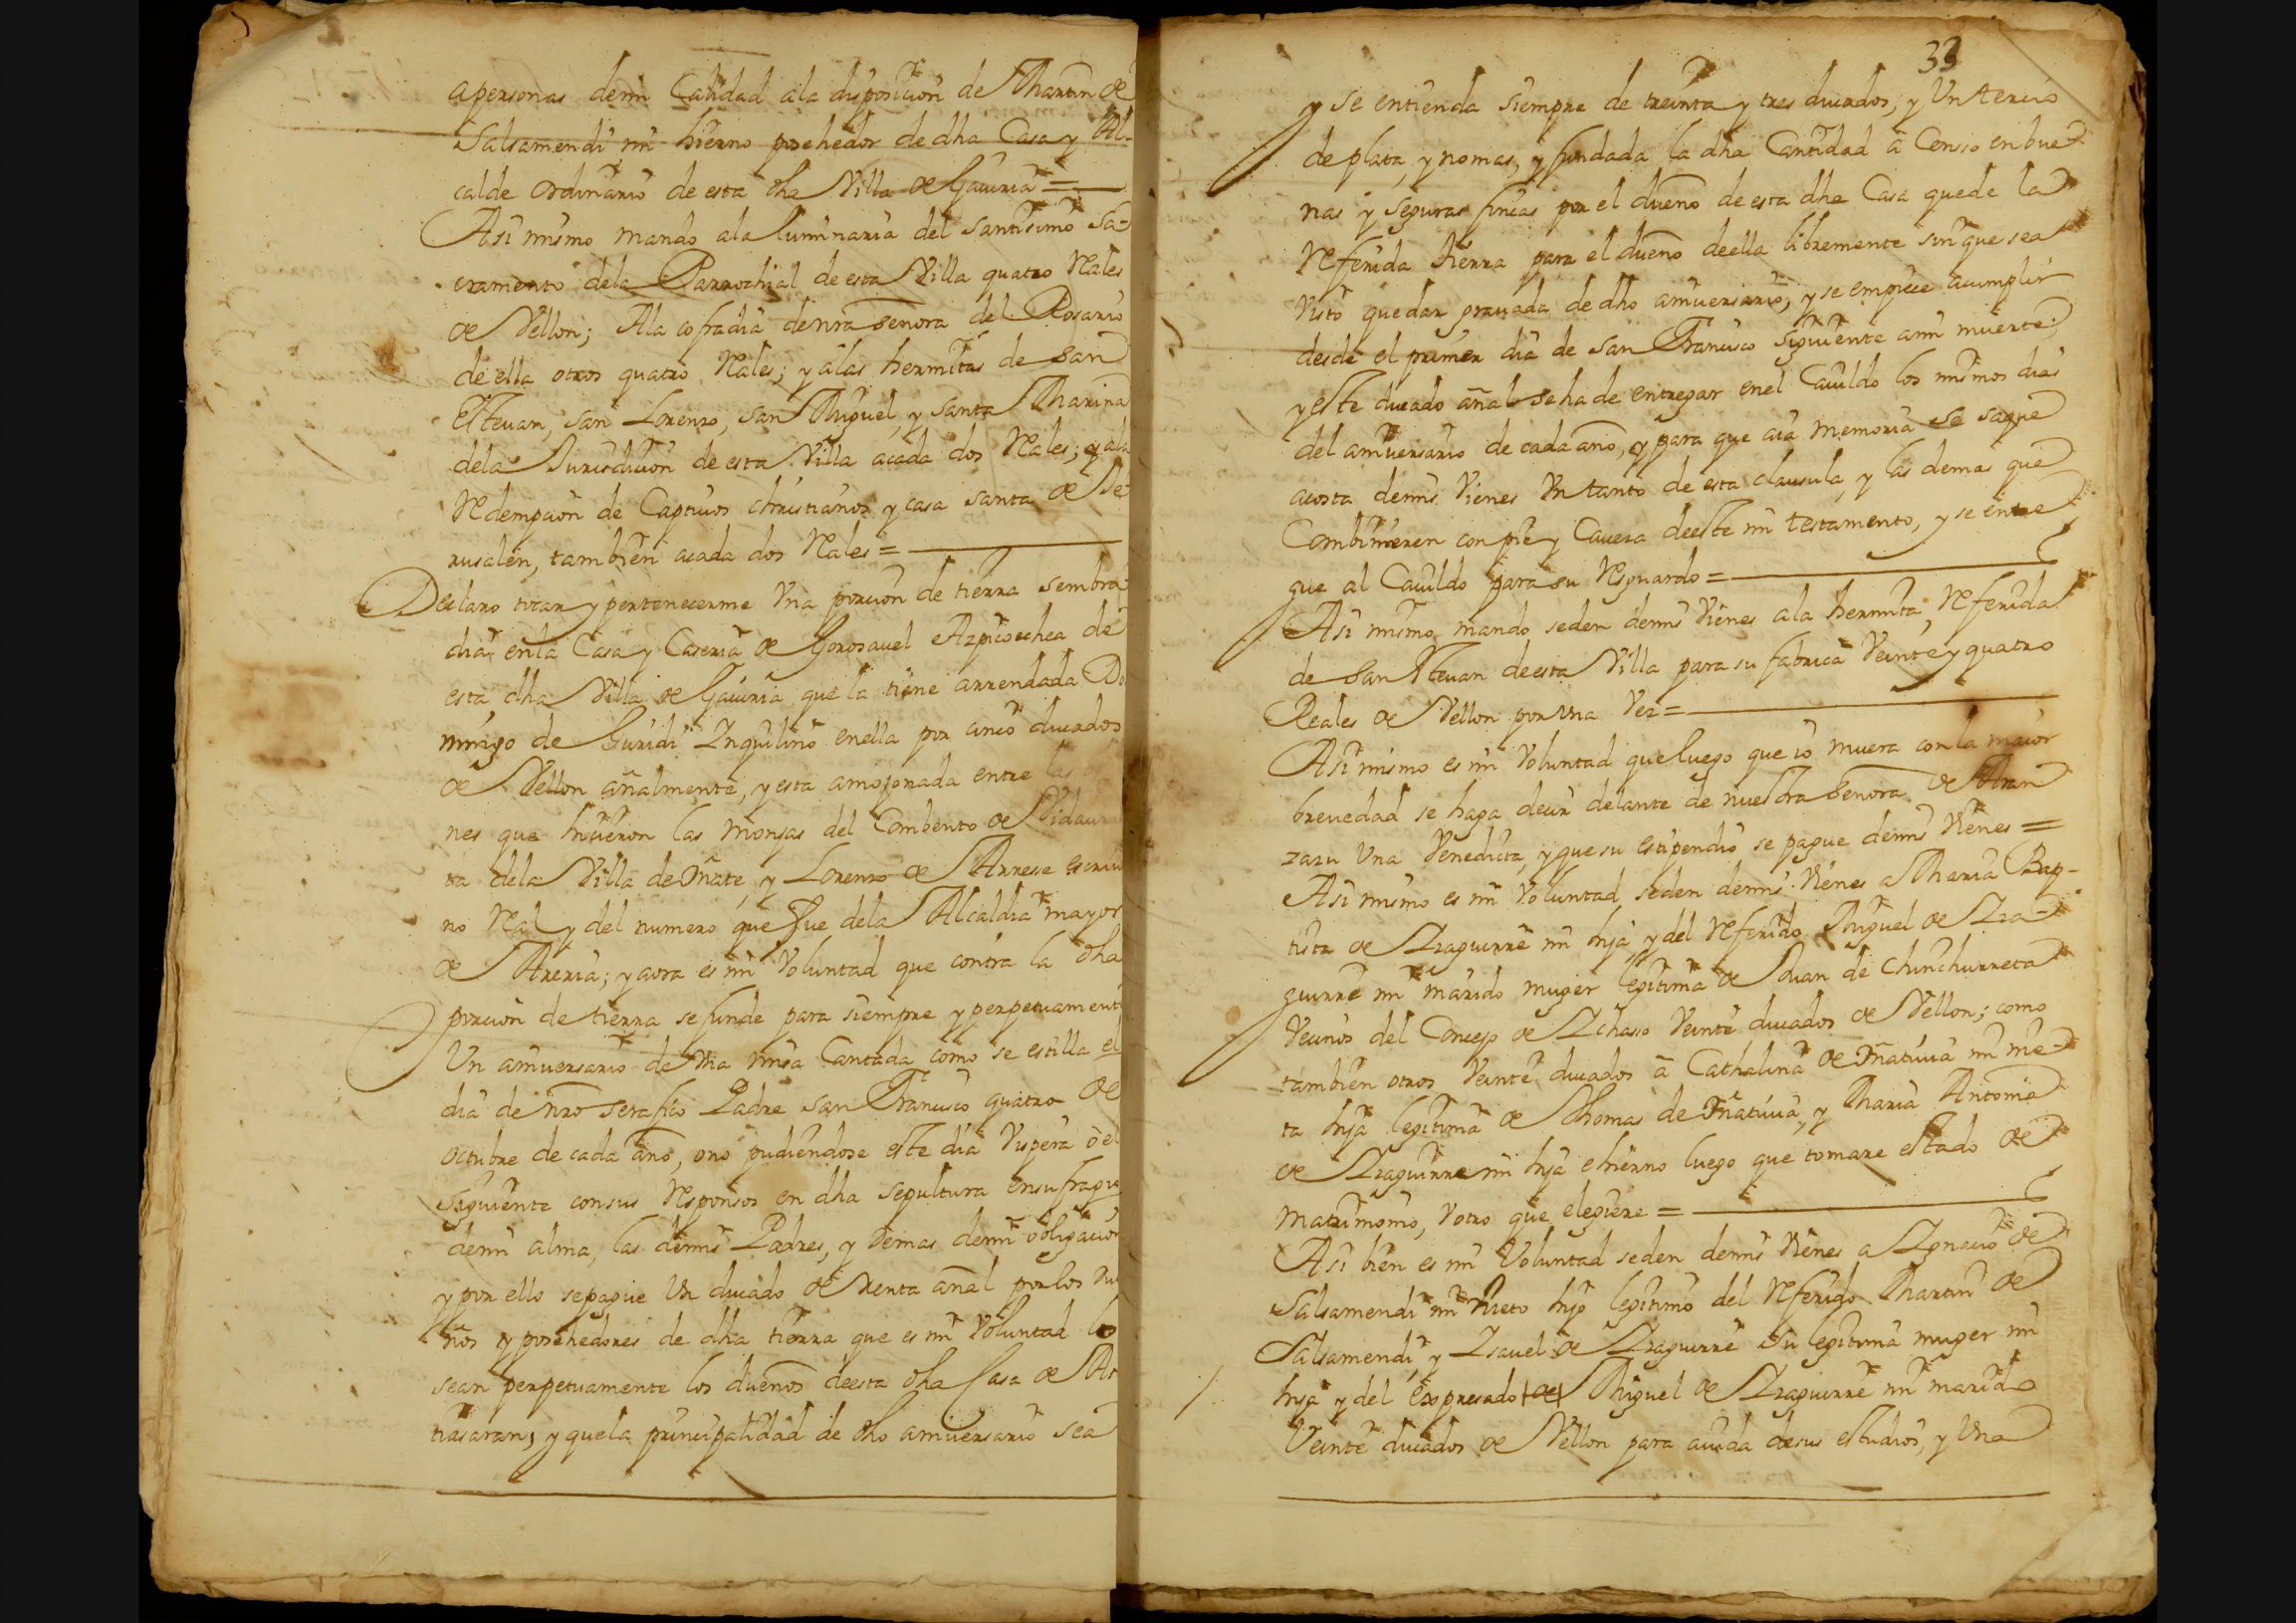 apersonas demi Calidad ala disposicion de Martin de
Salsamendi mi hierno posehedor de dha Casa y Al-
calde ordinario de esta dha Villa de Gauiria =
Asi mismo mando ala luminaria del Santisimo Sa-
cramento dela Parrochial de esta Villa quatro Rales
de Vellon; Ala cofradia de nra señora del Rosario
de ella otros quatro Rales; y alas hermitas de San
Esteuan, san Lorenzo, san Miguel, y santa Marina
dela Jurisdicion de esta Villa acada dos Rales; y ala
Redempcion de Captiuos christianos y casa santa de Je-
rusalen, tambien acada dos Rales =
Declaro tocar y pertenecerme Vna porcion de tierra sembra
dia en la Casa y Caseria de Gorosauel Azpicoechea de
esta dha Villa de Gauiria que la tiene arrendada Do
mingo de Guridi Inquilino enella por cinco ducados
de Vellon añalmente, y esta amojonada entre las
nes que hiuieron las monjas del Combento de Vidaurre
ta dela Villa de Oñate, y Lorenzo de Arrese escriu
no Real y del numero que fue dela Alcaldia mayor
de Areria; y aora es mi Voluntad que contra la dha
porcion de tierra se funde para siempre y perpetuament
Un aniuersario de Vna misa Cantada como se estilla el
dia de nro serafico Padre san Francisco quatro de
octubre de cada año, o no pudiendose este dia Vispera ò el
siguiente con sus Responsos en dha sepultura ensufragio
demi alma, las demis Padres, y demas demi obligacion
y por ello se pague Un ducado de Renta añal por los Du
eños y posehedores de dha tierra que es mi Voluntad lo
sean perpetuamente los dueños deesta dha Casa de Ar
tiasaran, y que la principalidad de dho aniuersario sea
33
y se entienda siempre de treinta y tres ducados, y Un tercio
de plata, y nomas, y fundada la dha Cantidad à Censo en bue-
nas y seguras fincas por el dueño de esta dha Casa quede la
Referida tierra para el dueño deella libremente sin que sea
Visto quedar grauada de dho aniuersario, y se empiece acumplir
desde el primer dia de san Francisco siguiente ami muerte;
y este ducado añal se ha de entregar enel Cauildo los mismos dias
del aniuersario de cada año, y para que aia memoria se saque
acosta demis Vienes Un tanto de esta clausula, y las demas que
Combinieren con pie y Cauera deeste mi testamento, y se entre
gue al Cauildo para su Resguardo =
Asi mismo mando seden demis Vienes ala hermita Referida
de San Esteuan deesta Villa para su fabrica Veinte y quatro
Reales de Vellon por Vna Vez =
Asi mismo es mi Voluntad que luego que io muera con la maior
breuedad se haga decir delante de nuestra Señora de Aran
zazu Una Venedicta, y que su estipendio se pague demis Vienes =
Asi mismo es mi Voluntad seden demis Vienes a Maria Bap-
tista de Izaguirre mi hija y del Referido Miguel de Iza-
guirre mi marido muger legitima de Juan de Chinchurreta
Vecinos del Concejo de Ichaso Veinte ducados de Vellon; como
tambien otros Veinte ducados à Cathalina de Oñatiuia mi nie-
ta hija legitima de Thomas de Oñatiuia, y Maria Antonia
de Izaguirre mi hija e hierno luego que tomare estado de
matrimonio, V otro que elegiere =
Asi bien es mi Voluntad seden demis Vienes a Ignacio de
Salsamendi mi Nieto hijo legitimo del Referido Martin de
Salsamendi, y Isauel de Izaguirre su legitima muger mi
hija y del expresado Miguel de Izaguirre mi marido
Veinte ducados de Vellon para aiuda desus estudios, y Una